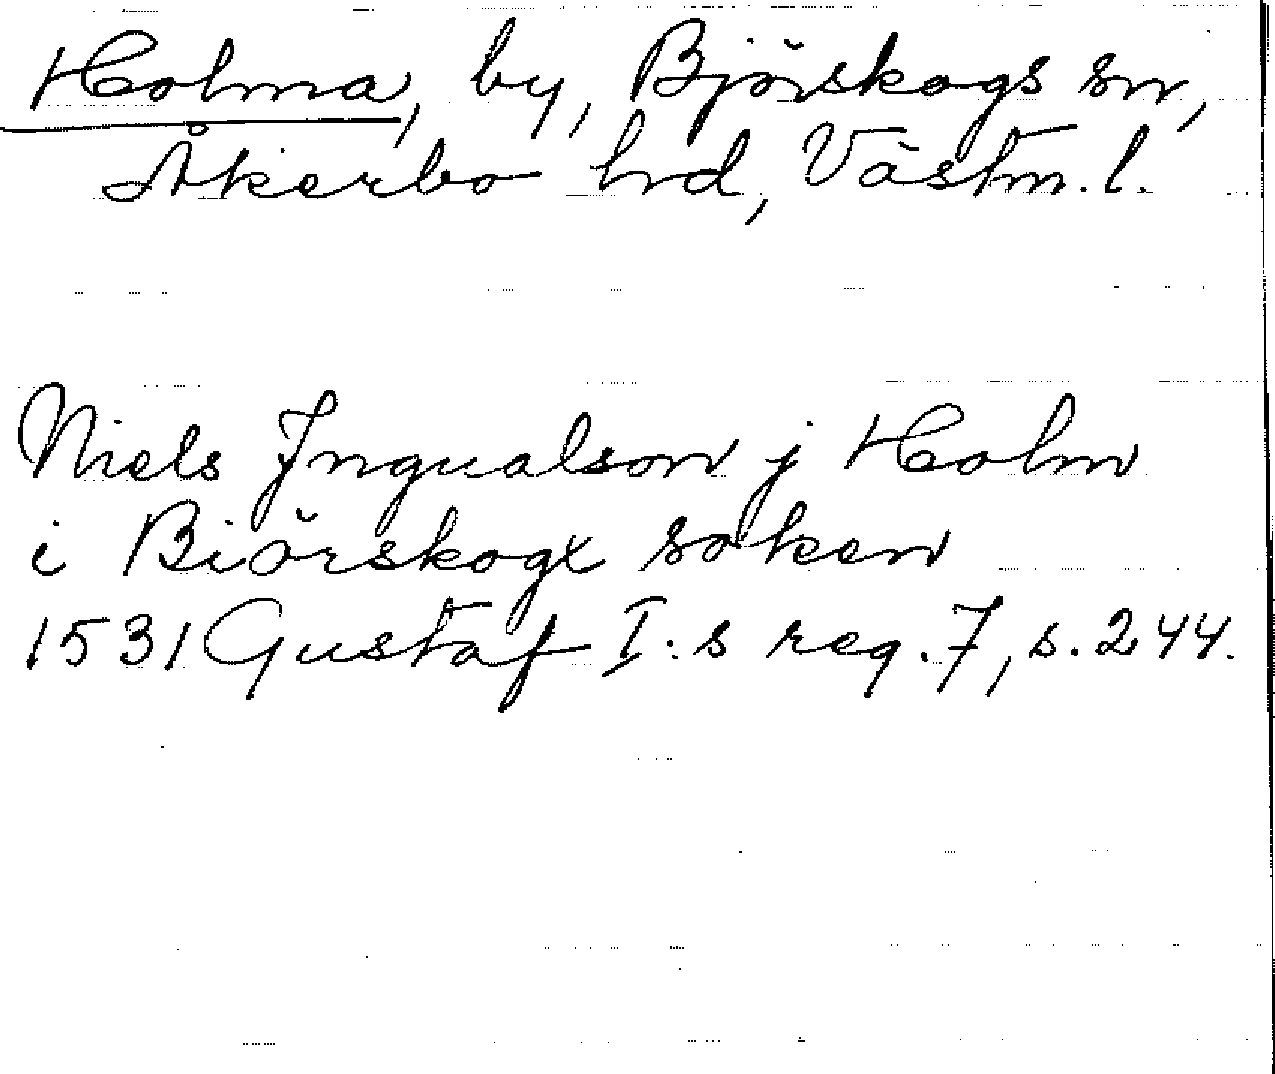 Holma, by, Björskogs sn,
Åkerbo hrd, Västm. l.
Niels Jngualson j Holm
i Biörskogx soken
1531 Gustaf I:s reg. 7, s. 244.